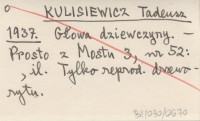 KULISIEWICZ Tadeusz
1937. Głowa dziewczyny. –
Prosto z Mostu 3, nr 52:
, il. Tylko reprod. drzewo-
rytu.